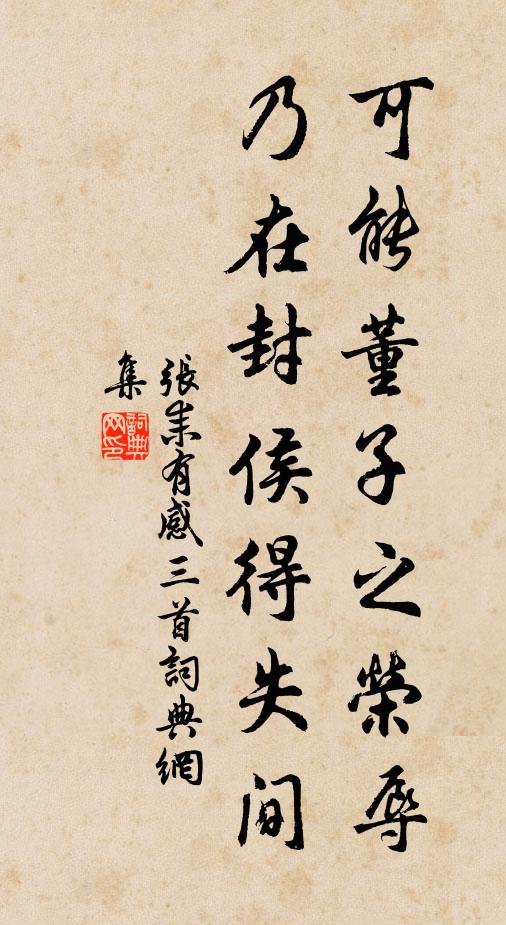 可能董子之榮辱
乃在封侯得失間
張耒有感三首詞典網
集
詞典
网印